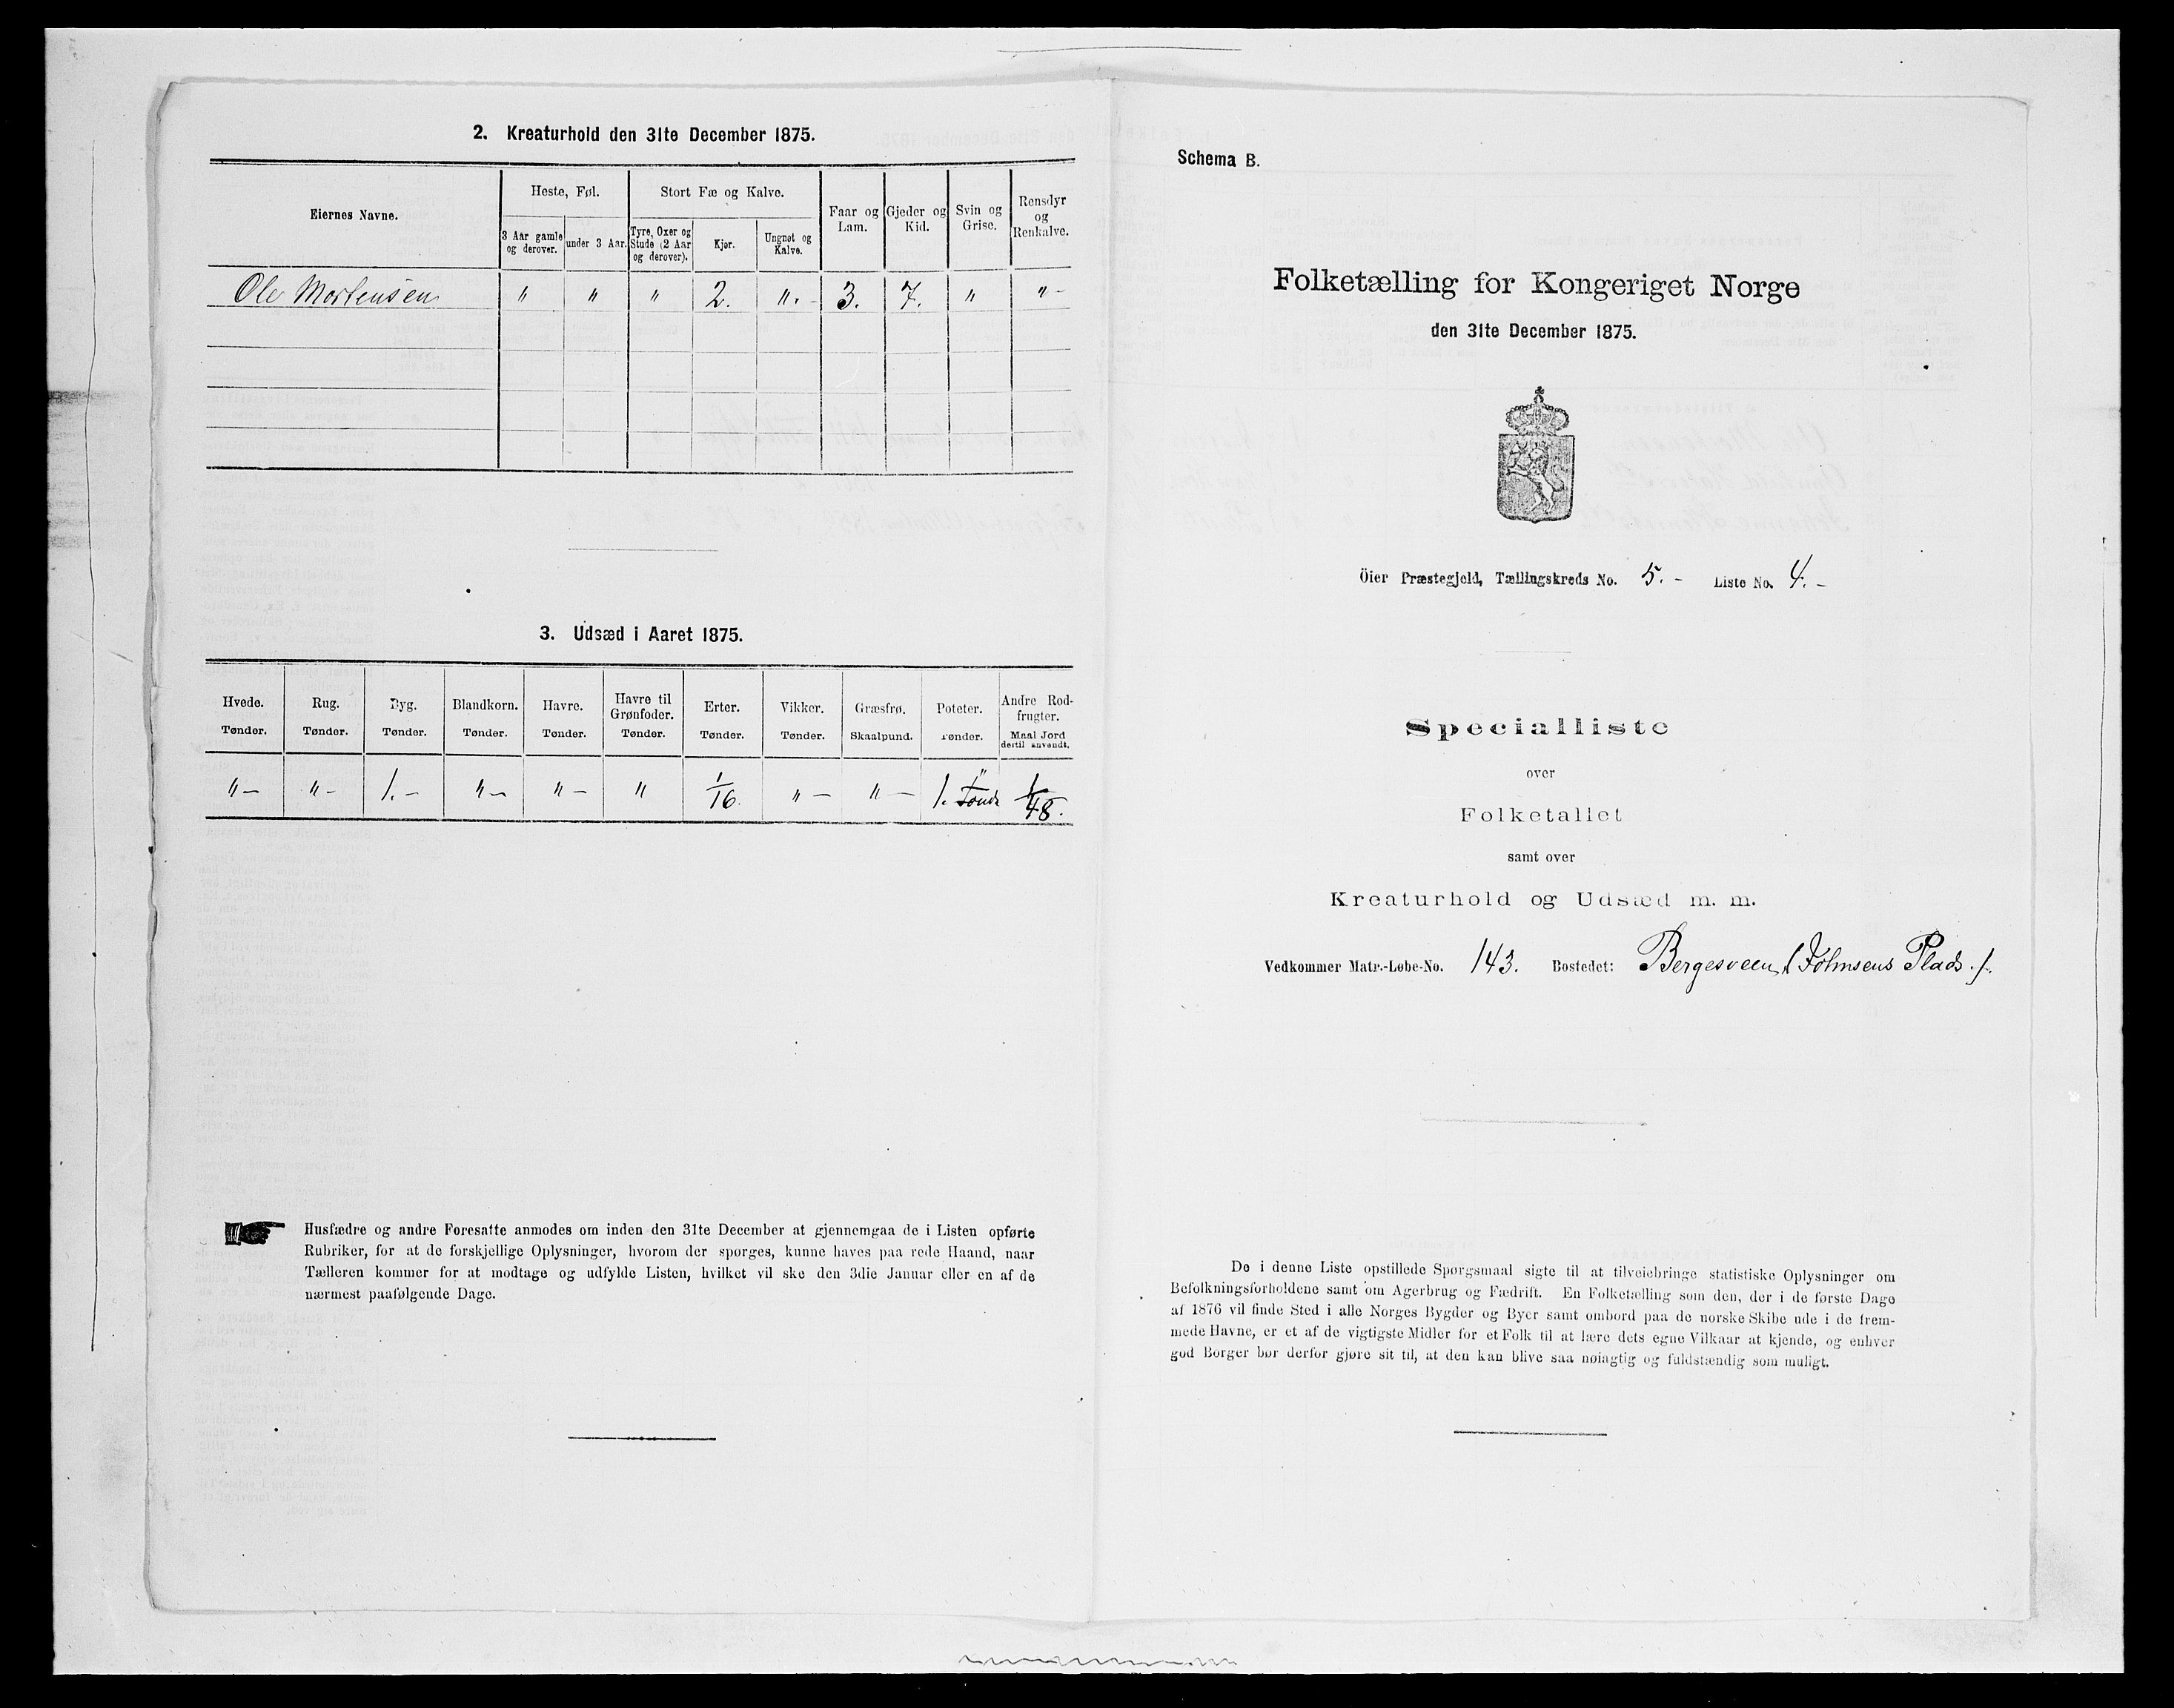 2. Kreaturhold den 31te December 1875.
Eiernes Navne.
Heste, Føl.
Stort Fæ og Kalve.
Faar og Lam.
Gjeder og Kid.
Svin og Grise.
Rensdyr og Renkalve.
3 Aar gamle og derover.
under 3 Aar.
Tyre, Oxer og Stude (2 Aar og derover).
Kjør.
Ungnøt og Kalve.
Ole Mortensen " " " 2. ". - 3. 7. " " -
3. Udsæd i Aaret 1875.
Hvede. Rug. Byg. Blandkorn. Havre. Havre til Grønfoder. Erter. Vikker. Græsfrø. Poteter. Andre Rodfrugter.
Tønder. Tønder. Tønder. Tønder. Tønder. Tønder. Tønder. Tønder. Skaalpund. Tønder. Maal Jord dertil anvendt.
" - " - 1. - " - " - " 1/16. " - " - 1. Tönde 1/48.
Husfædre og andre Foresatte anmodes om inden den 31te December at gjennemgaa de i Listen opførte
Rubriker, for at de forskjellige Oplysninger, hvorom der spørges, kunne haves paa rede Haand, naar
Tælleren kommer for at modtage og udfylde Listen, hvilket vil ske den 3die Januar eller en af de
nærmest paafølgende Dage.
Schema B.
Folketælling for Kongeriget Norge
den 31te December 1875.
Öier Præstegjeld, Tællingskreds No. 5. - Liste No. 4. -
Specialliste
over
Folketallet
samt over
Kreaturhold og Udsæd m. m.
Vedkommer Matr.-Løbe-No. 143. Bostedet: Bergesveen, (Johnsens Plads.)
De i denne Liste opstillede Spørgsmaal sigte til at tilveiebringe statistiske Oplysninger om
Befolkningsforholdene samt om Agerbrug og Fædrift. En Folketælling som den, der i de første Dage
af 1876 vil finde Sted i alle Norges Bygder og Byer samt ombord paa de norske Skibe ude i de frem-
mede Havne, er et af de vigtigste Midler for et Folk til at lære dets egne Vilkaar at kjende, og enhver
god Borger bør derfor gjøre sit til, at den kan blive saa nøiagtig og fuldstændig som muligt.